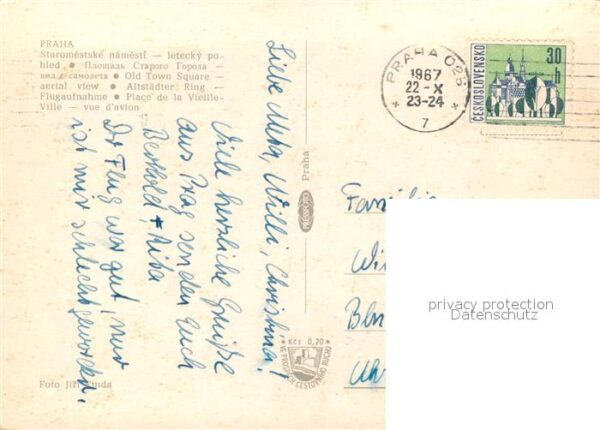 PRAHA
Staroměstské náměstí — letecký po-
hled ● Площадь Старого Города —
вид с самолета ● Old Town Square —
aerial view ● Altstädter Ring —
Flugaufnahme ● Place de la Vieille-
Ville — vue d'avion
Liebe Meta, Willi, Christina!
Viele herzliche Grüße
aus Prag senden Euch
Berthold + Rita
Der Flug war gut, nur
ist mir schlecht geworden.
Foto Jiří
Praha
Kčs 0,20
VE PROSPĚCH CESTOVNÍHO RUCHU
PRAHA 025
1967
22-X
23-24
7
ČESKOSLOVENSKO
30 h
Familie
privacy protection
Datenschutz